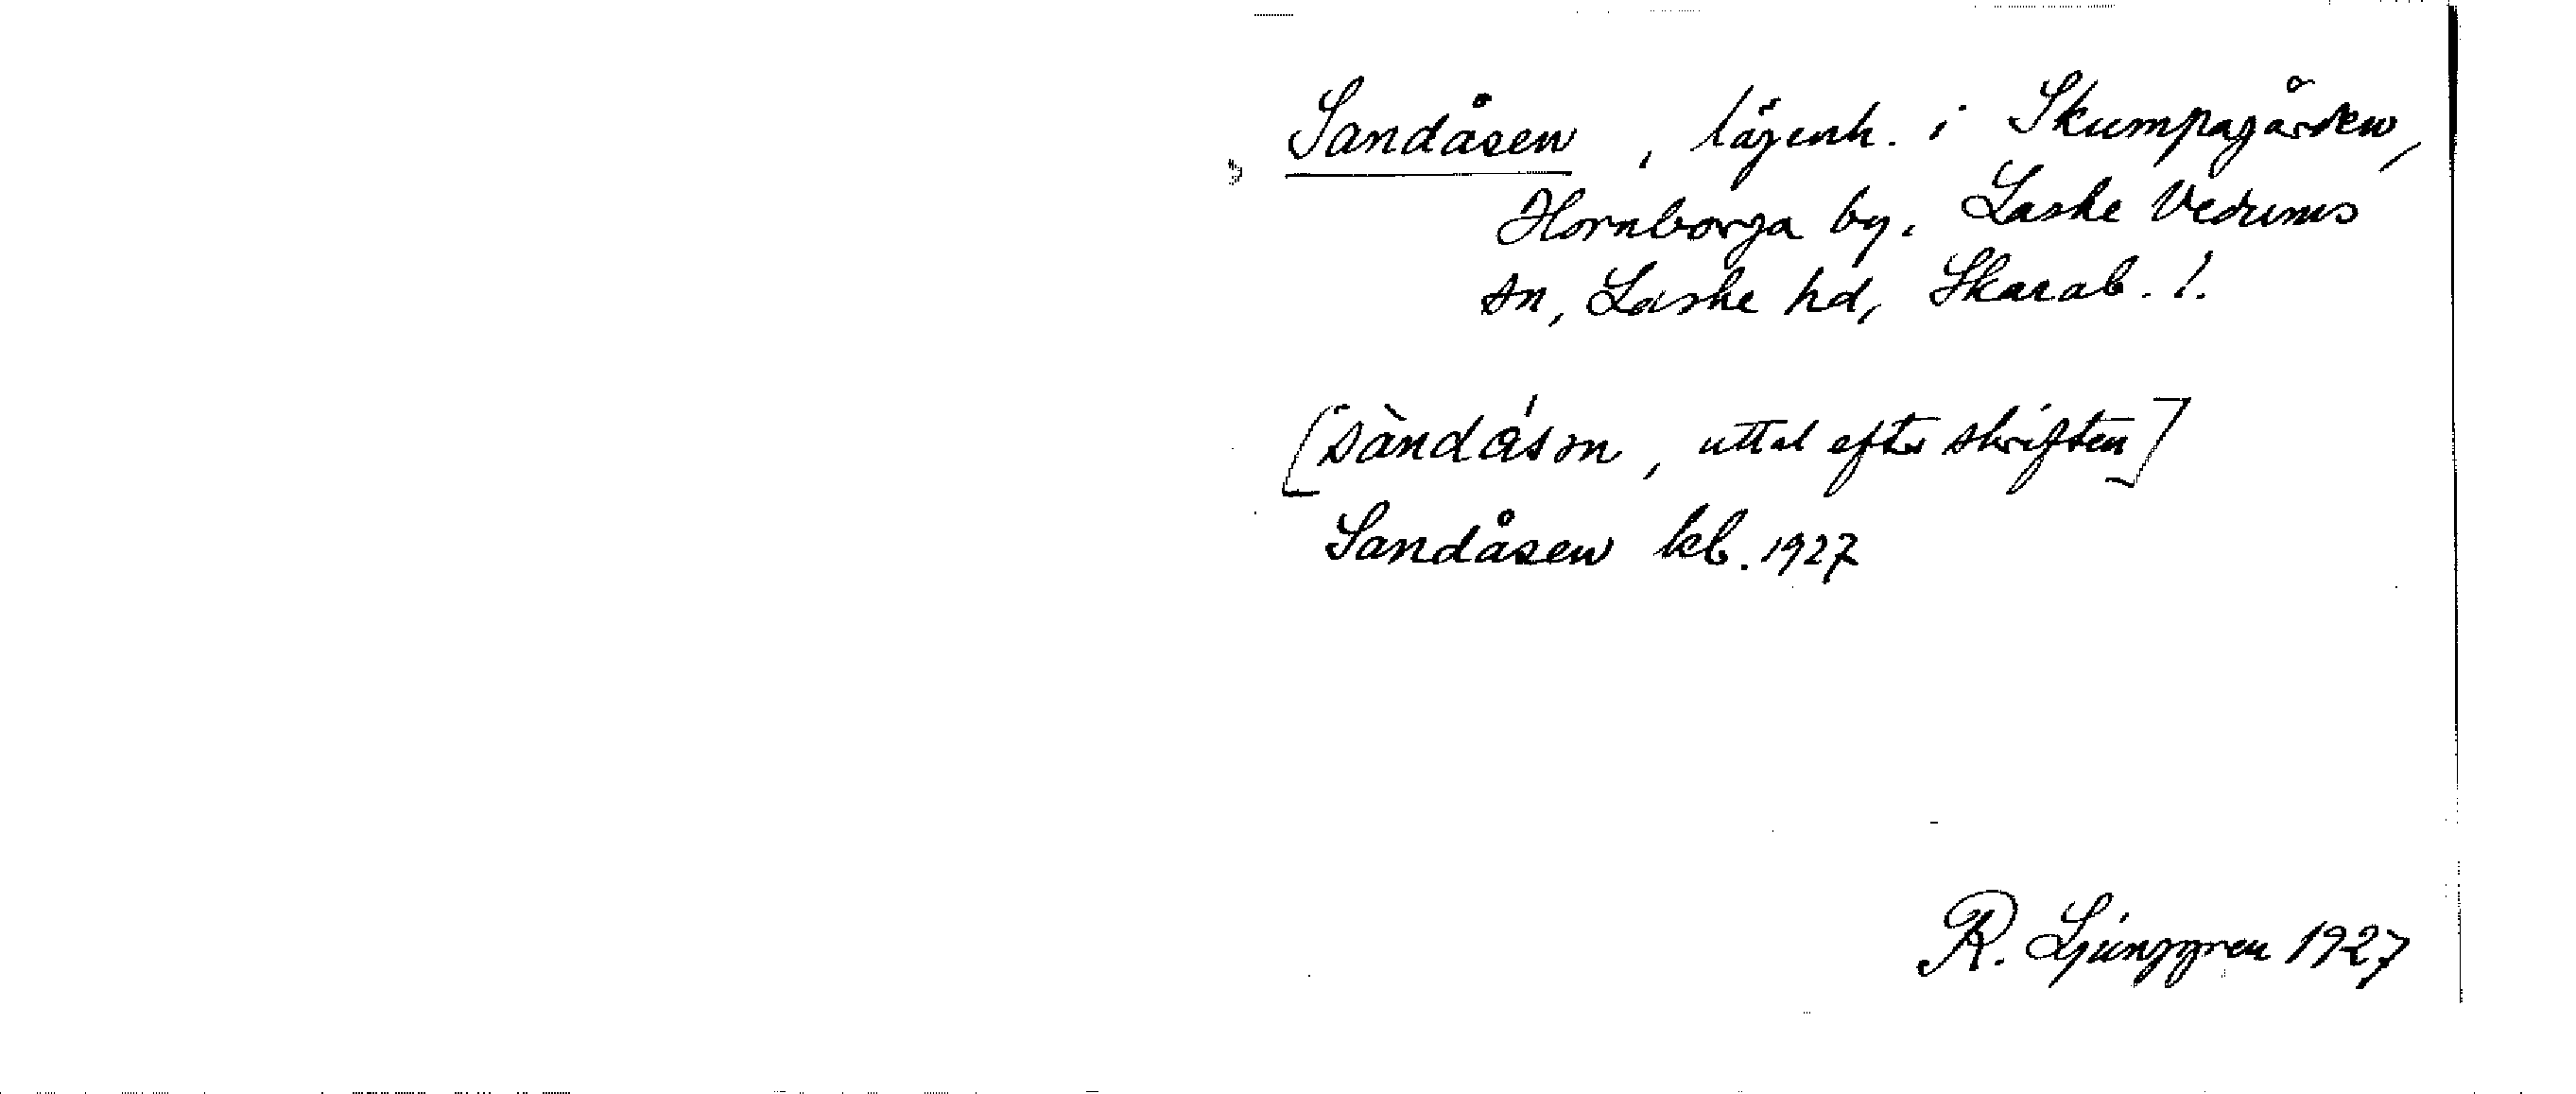 Sandåsen, lägenh. i Skumpagården,
Hornborga by, Laske Vedums
sn, Laske hd, Skarab. l.
[sàndásn, uttal efter skriften]
Sandåsen kb. 1927
R. Ljunggren 1927